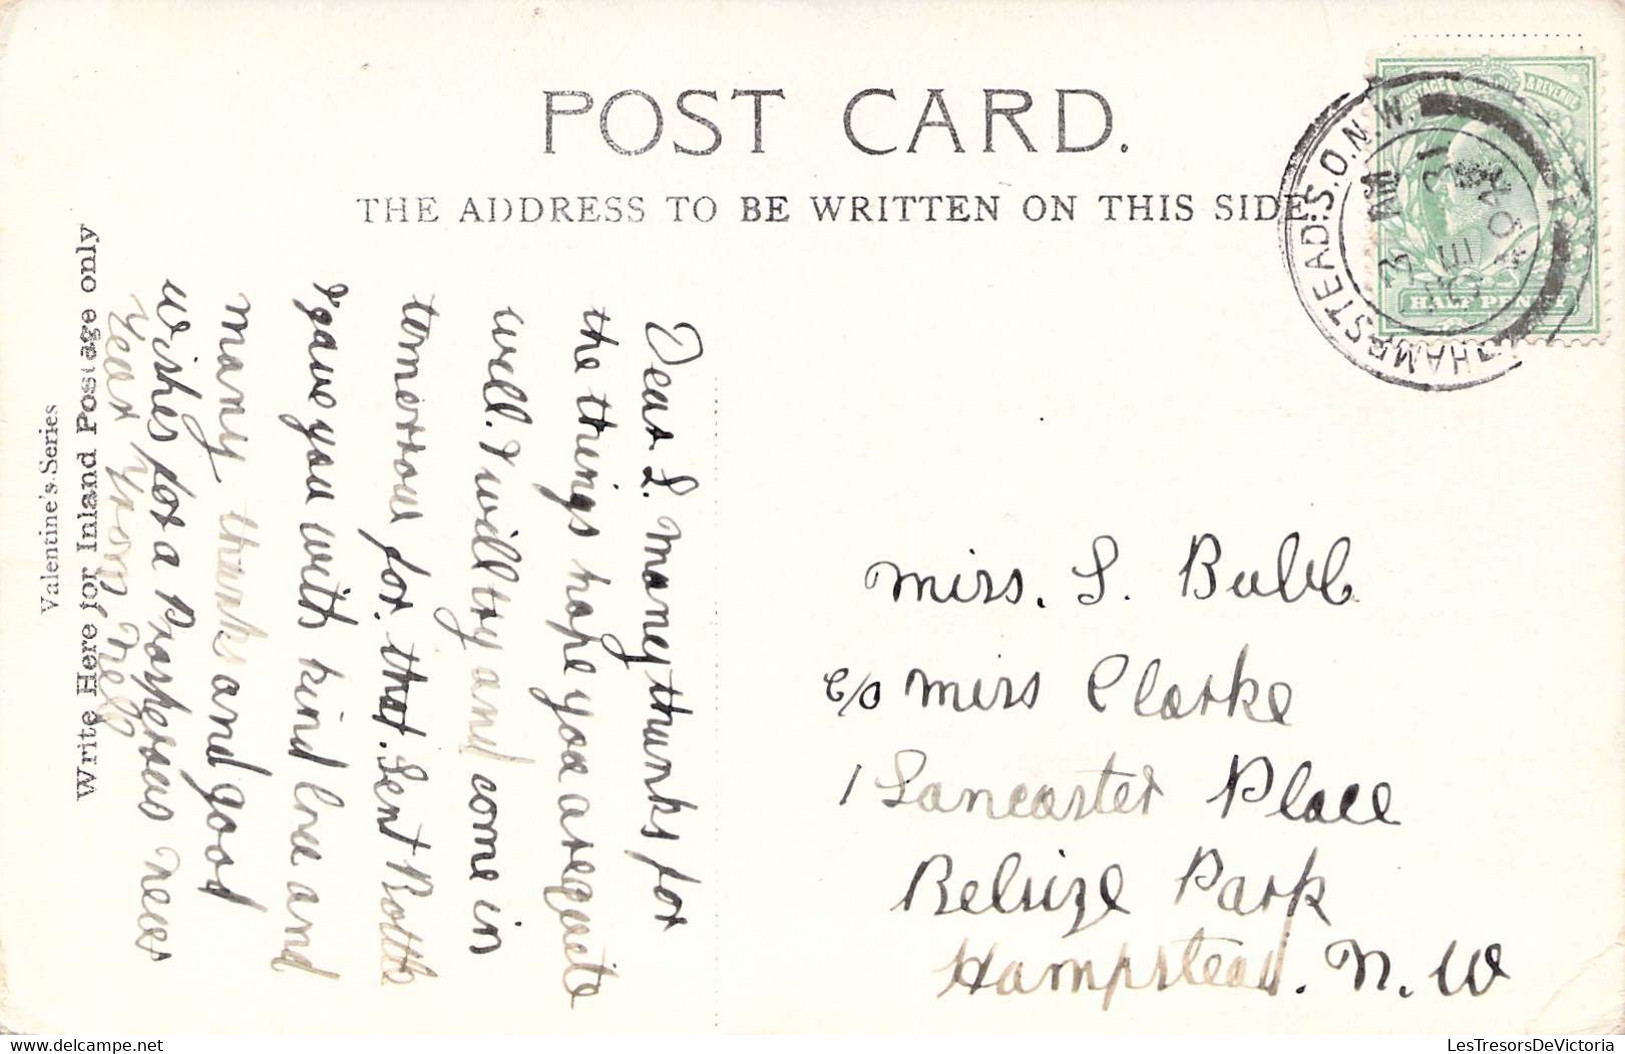 POST CARD.
THE ADDRESS TO BE WRITTEN ON THIS SIDE.
Valentine's Series
Write Here, for Inland Postage only
Dear L. Maney thanks for
the things hope you are quite
well. I will try and come in
tomorrow for that. Sent
I gave you with kind love and
many thanks and good
wishes for a Prosperous New
Year from Nell
Miss. L. Bubb
c/o Miss Clarke
1 Lancaster Place
Belsize Park
Hampstead. N. W
HAMPSTEAD.S.O.N.W.
DE 31
POSTAGE & REVENUE
HALF PENNY
delcampe.net
LesTresorsDeVictoria